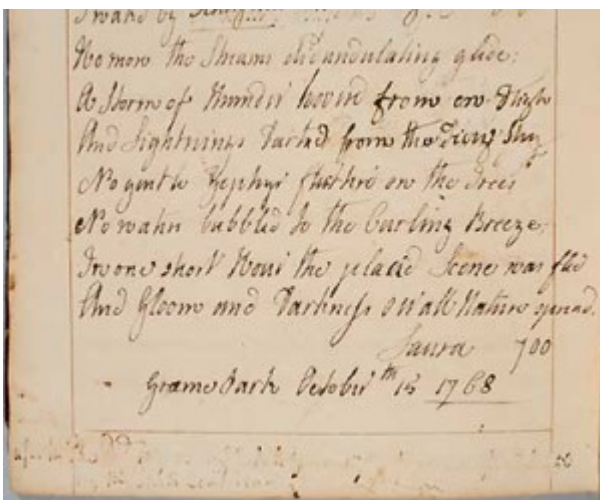 I wake by
No more the Streams did undulating glide:
A Storm of Thunder hover'd from on High
And Lightnings Darted from the Fiery Sky
No gentle Zephyr flutter'd on the Trees
No water bubbled to the Curling Breeze;
In one short Hour the placid Scene was fled
And Gloom and Darkness o'er all Nature spread.
Laura 700
Græme Park October th 15 1768